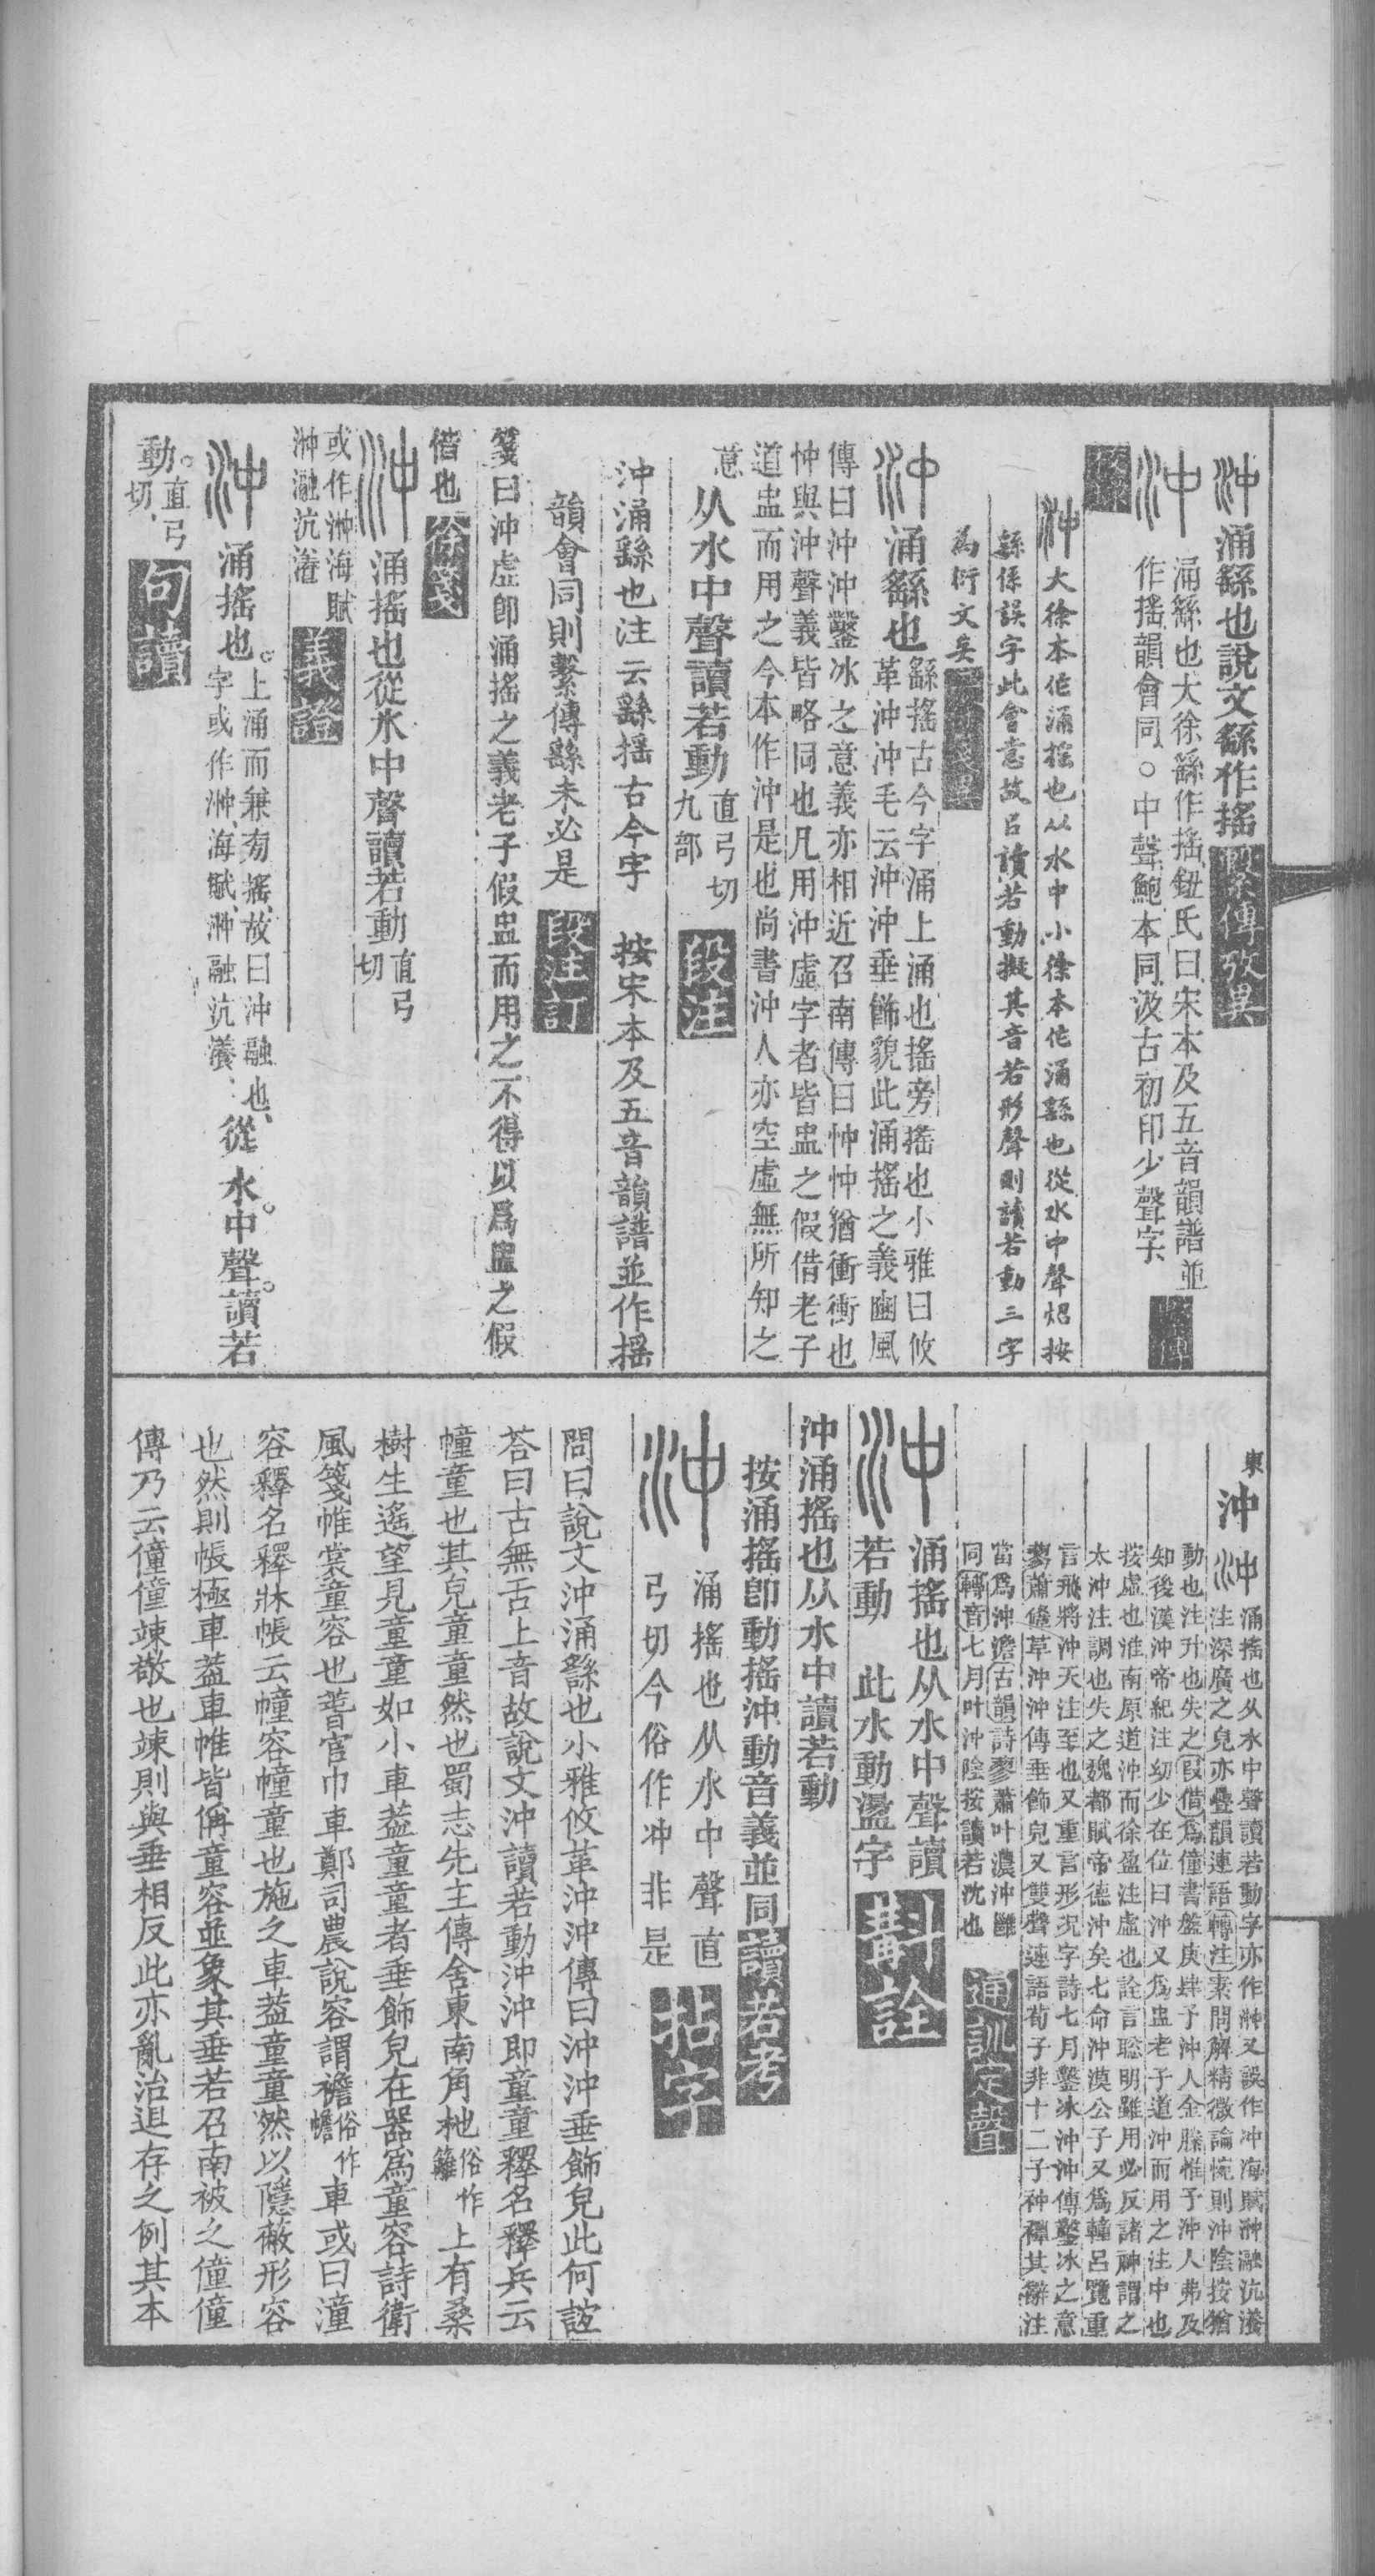 沖涌繇也說文繇作搖 繫傳攷異
沖 涌繇也大徐繇作搖鈕氏曰宋本及五音韻譜並
作搖韻會同○中聲鮑本同汲古初印少聲字
校錄
沖大徐本作涌搖也从水中小徐本作涌繇也從水中聲炤按
繇係誤字此會意故曰讀若動擬其音若形聲則讀若動三字
爲衍文矣
沖 涌繇也 繇搖古今字涌上涌也搖旁搖也小雅曰攸
革沖沖毛云沖沖垂飾貌此涌搖之義豳風
傳曰沖沖鑿冰之意義亦相近召南傳曰忡忡猶衝衝也
忡與沖聲義皆略同也凡用沖虛字者皆盅之假借老子
道盅而用之今本作沖是也尚書沖人亦空虛無所知之
意 从水中聲讀若動 直弓切
九部 段注
沖涌繇也注云繇搖古今字 按宋本及五音韻譜並作搖
韻會同則繫傳繇未必是 段注訂
箋曰沖虛卽涌搖之義老子假盅而用之不得以爲盅之假
借也 徐箋
沖 涌搖也從水中聲讀若動 直弓
切
或作浺海賦
浺瀜沆瀁 義證
沖 涌搖也。上涌而兼旁搖、故曰沖融也、
字或作浺、海賦、浺融沆瀁、 從水。中聲。讀若
動。直弓
切、 句讀
東 沖 沖 涌搖也从水中聲讀若動字亦作浺又誤作冲海賦浺融沆瀁
注深廣之皃亦疊韻連語轉注素問解精微論惋則沖陰按猶
動也注升也失之叚借爲僮書盤庚肆予沖人金縢惟予沖人弗及
知後漢沖帝紀注幼少在位曰沖又爲盅老子道沖而用之注中也
按虛也淮南原道沖而徐盈注虛也詮言聰明雖用必反諸神謂之
太沖注調也失之魏都賦帝德沖矣七命沖漠公子又爲䡴呂覽重
言飛將沖天注至也又重言形況字詩七月鑿冰沖沖傳鑿冰之意
蓼蕭鞗革沖沖傳垂飾皃又雙聲連語荀子非十二子神禫其辭注
當爲沖澹古韻詩蓼蕭叶濃沖雝
同轉音七月叶沖陰按讀若沈也 通訓定聲
沖 涌搖也从水中聲讀
若動 此水動盪字 斠詮
沖涌搖也从水中讀若動
按涌搖卽動搖沖動音義並同 讀若考
沖 涌搖也从水中聲直
弓切今俗作冲非是 拈字
問曰說文沖涌繇也小雅攸革沖沖傳曰沖沖垂飾皃此何誼
荅曰古無舌上音故說文沖讀若動沖沖即童童釋名釋兵云
幢童也其皃童童然也蜀志先主傳舍東南角杝俗作
籬上有桑
樹生遙望見童童如小車葢童童者垂飾皃在器爲童容詩衛
風箋帷裳童容也萅官巾車鄭司農說容謂襜俗作
幨車或曰潼
容釋名釋牀帳云幢容幢童也施之車葢童童然以隱蔽形容
也然則帳極車葢車帷皆偁童容並象其垂若召南被之僮僮
傳乃云僮僮竦敬也竦則與垂相反此亦亂治徂存之例其本